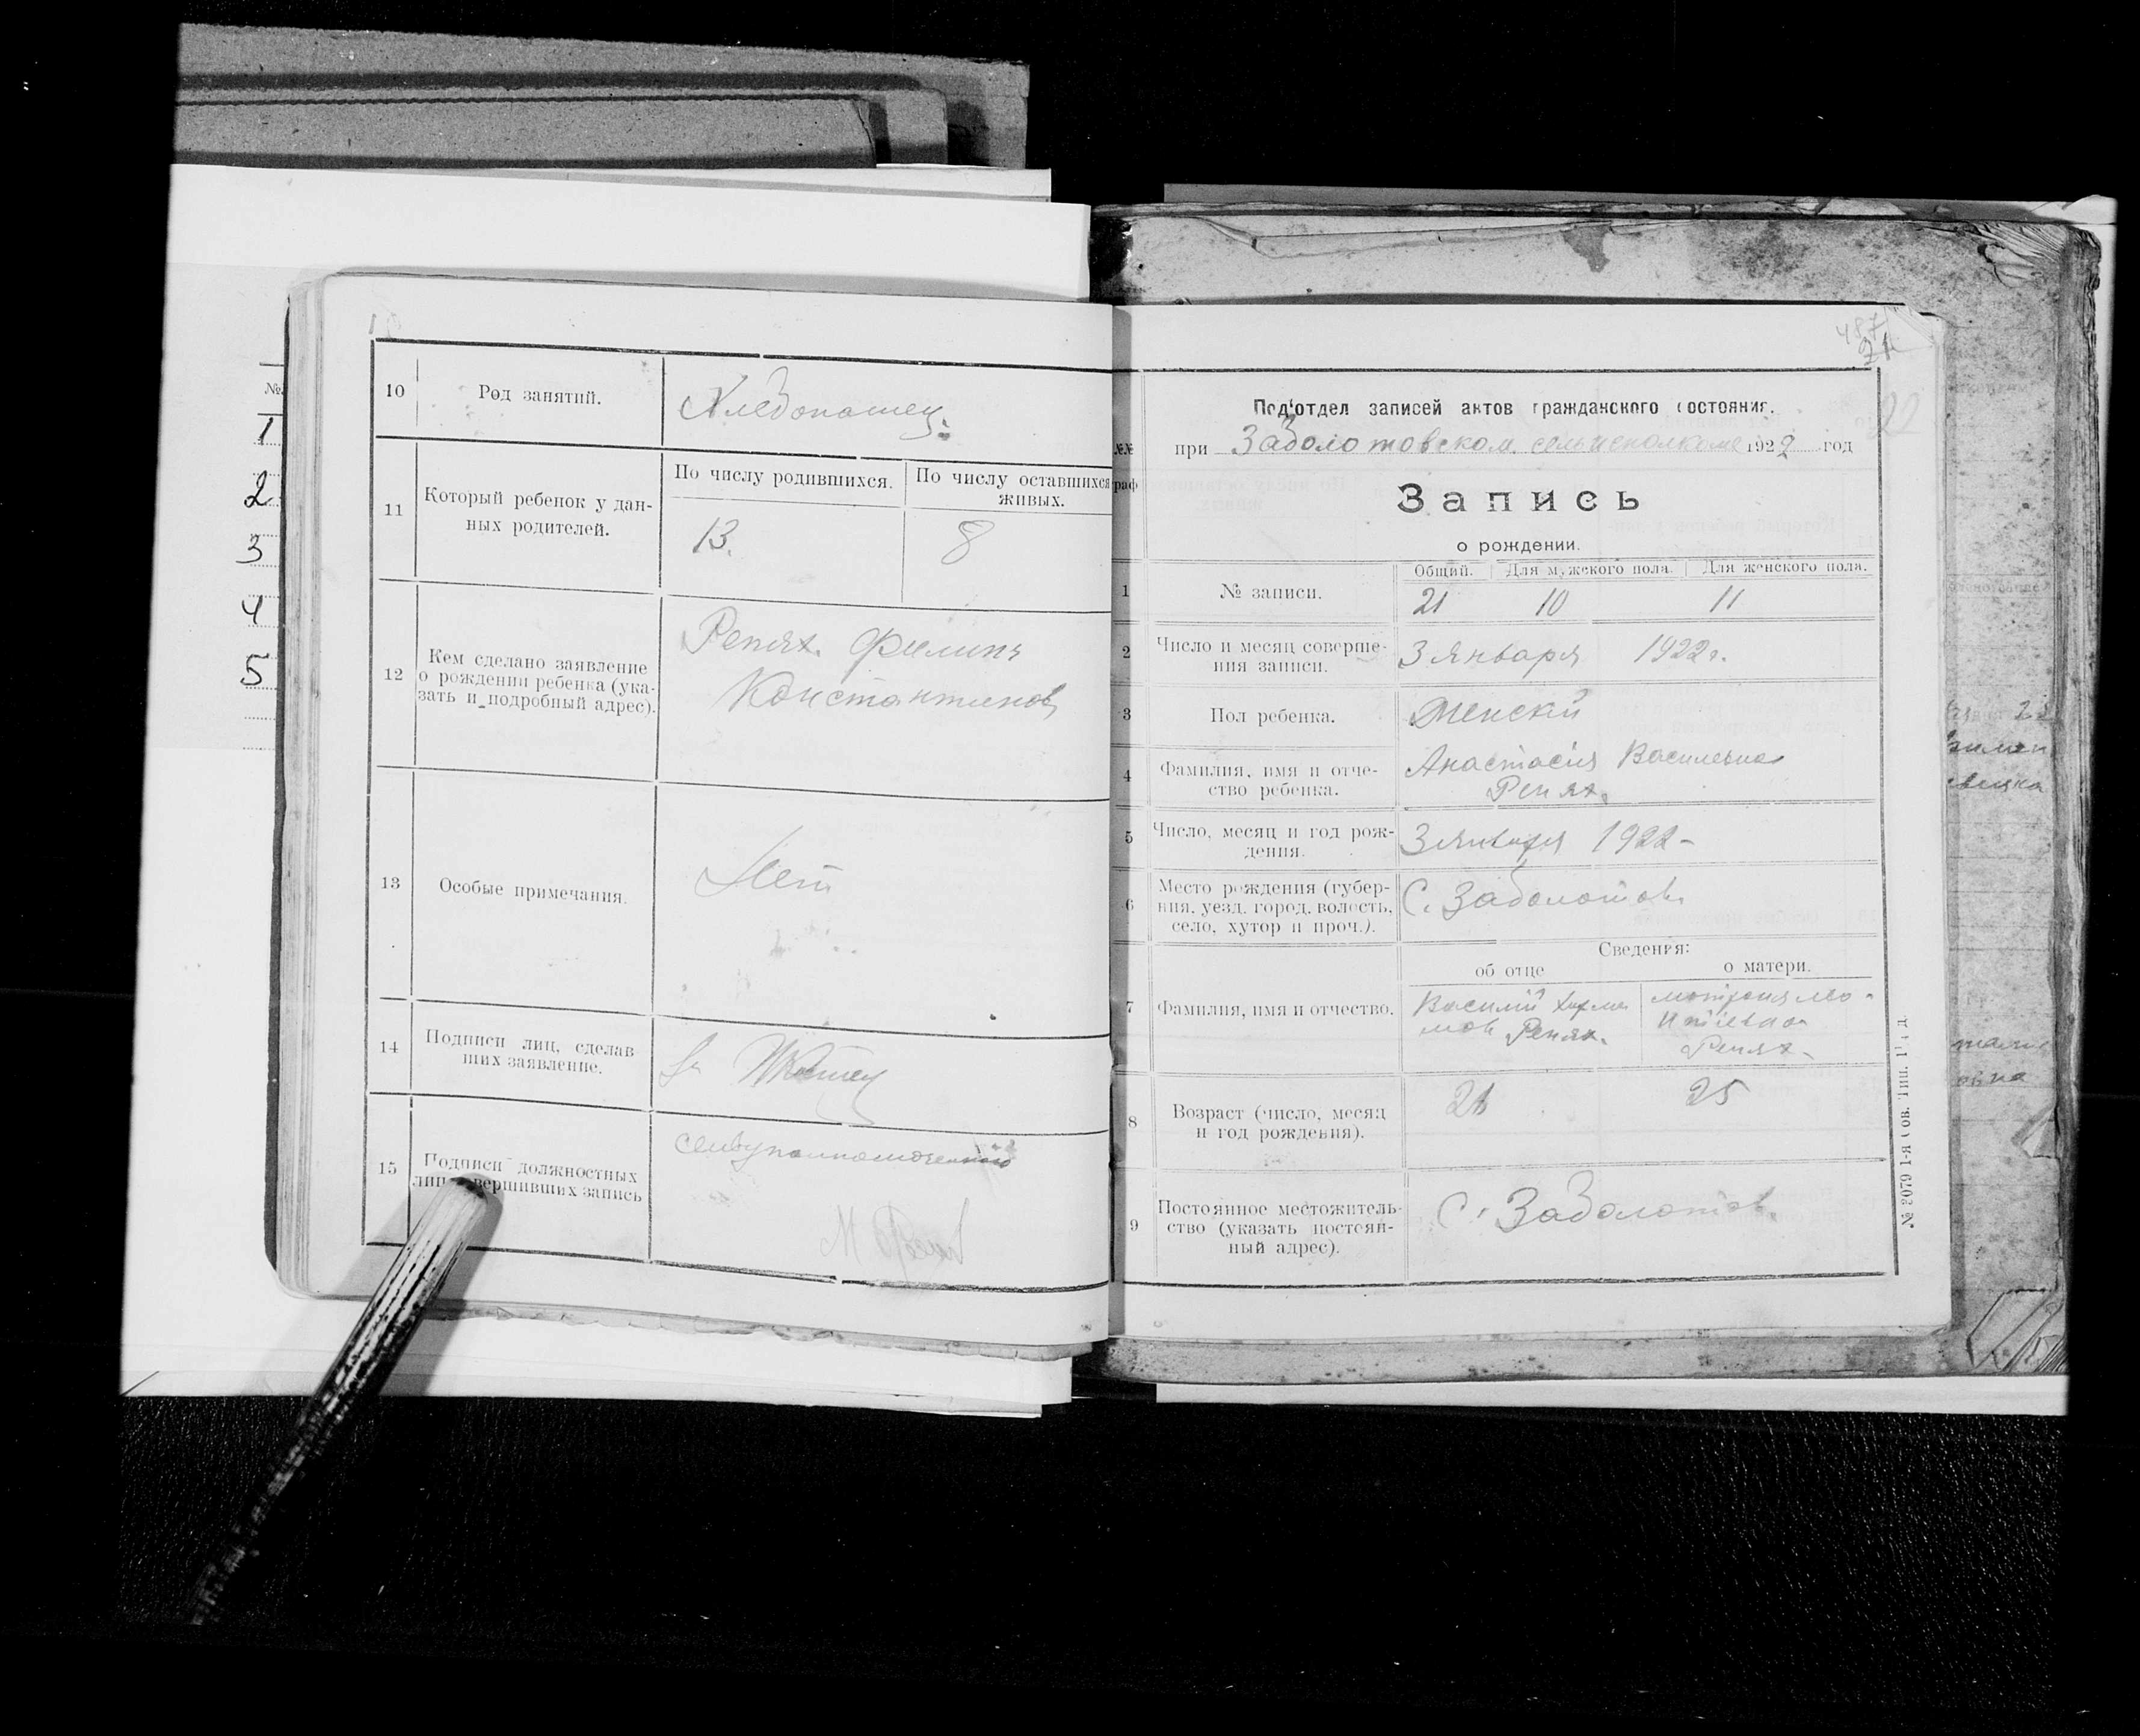 №
1
2
3
4
5
10
Род занятий.
Хлебопашец.
11
Который ребенок у дан-
ных родителей.
По числу родившихся.
По числу оставшихся
живых.
13.
8
12
Кем сделано заявление
о рождении ребенка (ука-
зать и подробный адрес).
Репях. Филипъ
Константинов
13
Особые примечания.
Нет
14
Подписи лиц, сделав
ших заявление.
15
Подписи должностных
лиц вершивших запись
487
21
Под'отдел записей актов гражданского состояния.
при Заболотовском сельисполкоме 1922 год
№№
граф
Запись
о рождении.
Общий. Для мужского пола. Для женского пола.
1
№ записи.
21 10 11
2
Число и месяц соверше-
ния записи.
3 января 1922 г.
3
Пол ребенка.
Женский
4
Фамилия, имя и отче-
ство ребенка.
Анастасія Васильевна
Репях.
5
Число, месяц и год рож-
дения.
3 января 1922 -
6
Место рождения (губер-
ния, уезд, город, волость,
село, хутор и проч.).
С. Заболотов.
Сведения:
об отце
о матери.
7
Фамилия, имя и отчество.
Василий
Репях.
Репях -
8
Возраст (число, месяц
и год рождения).
25
9
Постоянное местожитель-
ство (указать постоян-
ный адрес).
С. Заболотов.
№ 2079 1-я Сов. Тип.